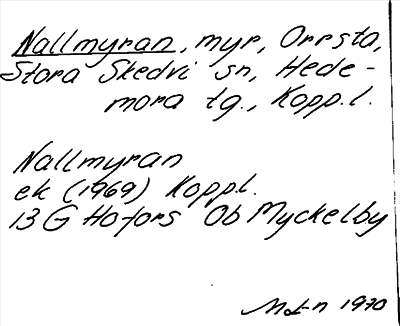 Nallmyran, myr, Orrsta,
Stora Skedvi sn, Hede-
mora tg., Kopp.l.
Nallmyran
ek (1969) Kopp.l.
13 G Hofors Ob Myckelby
1970